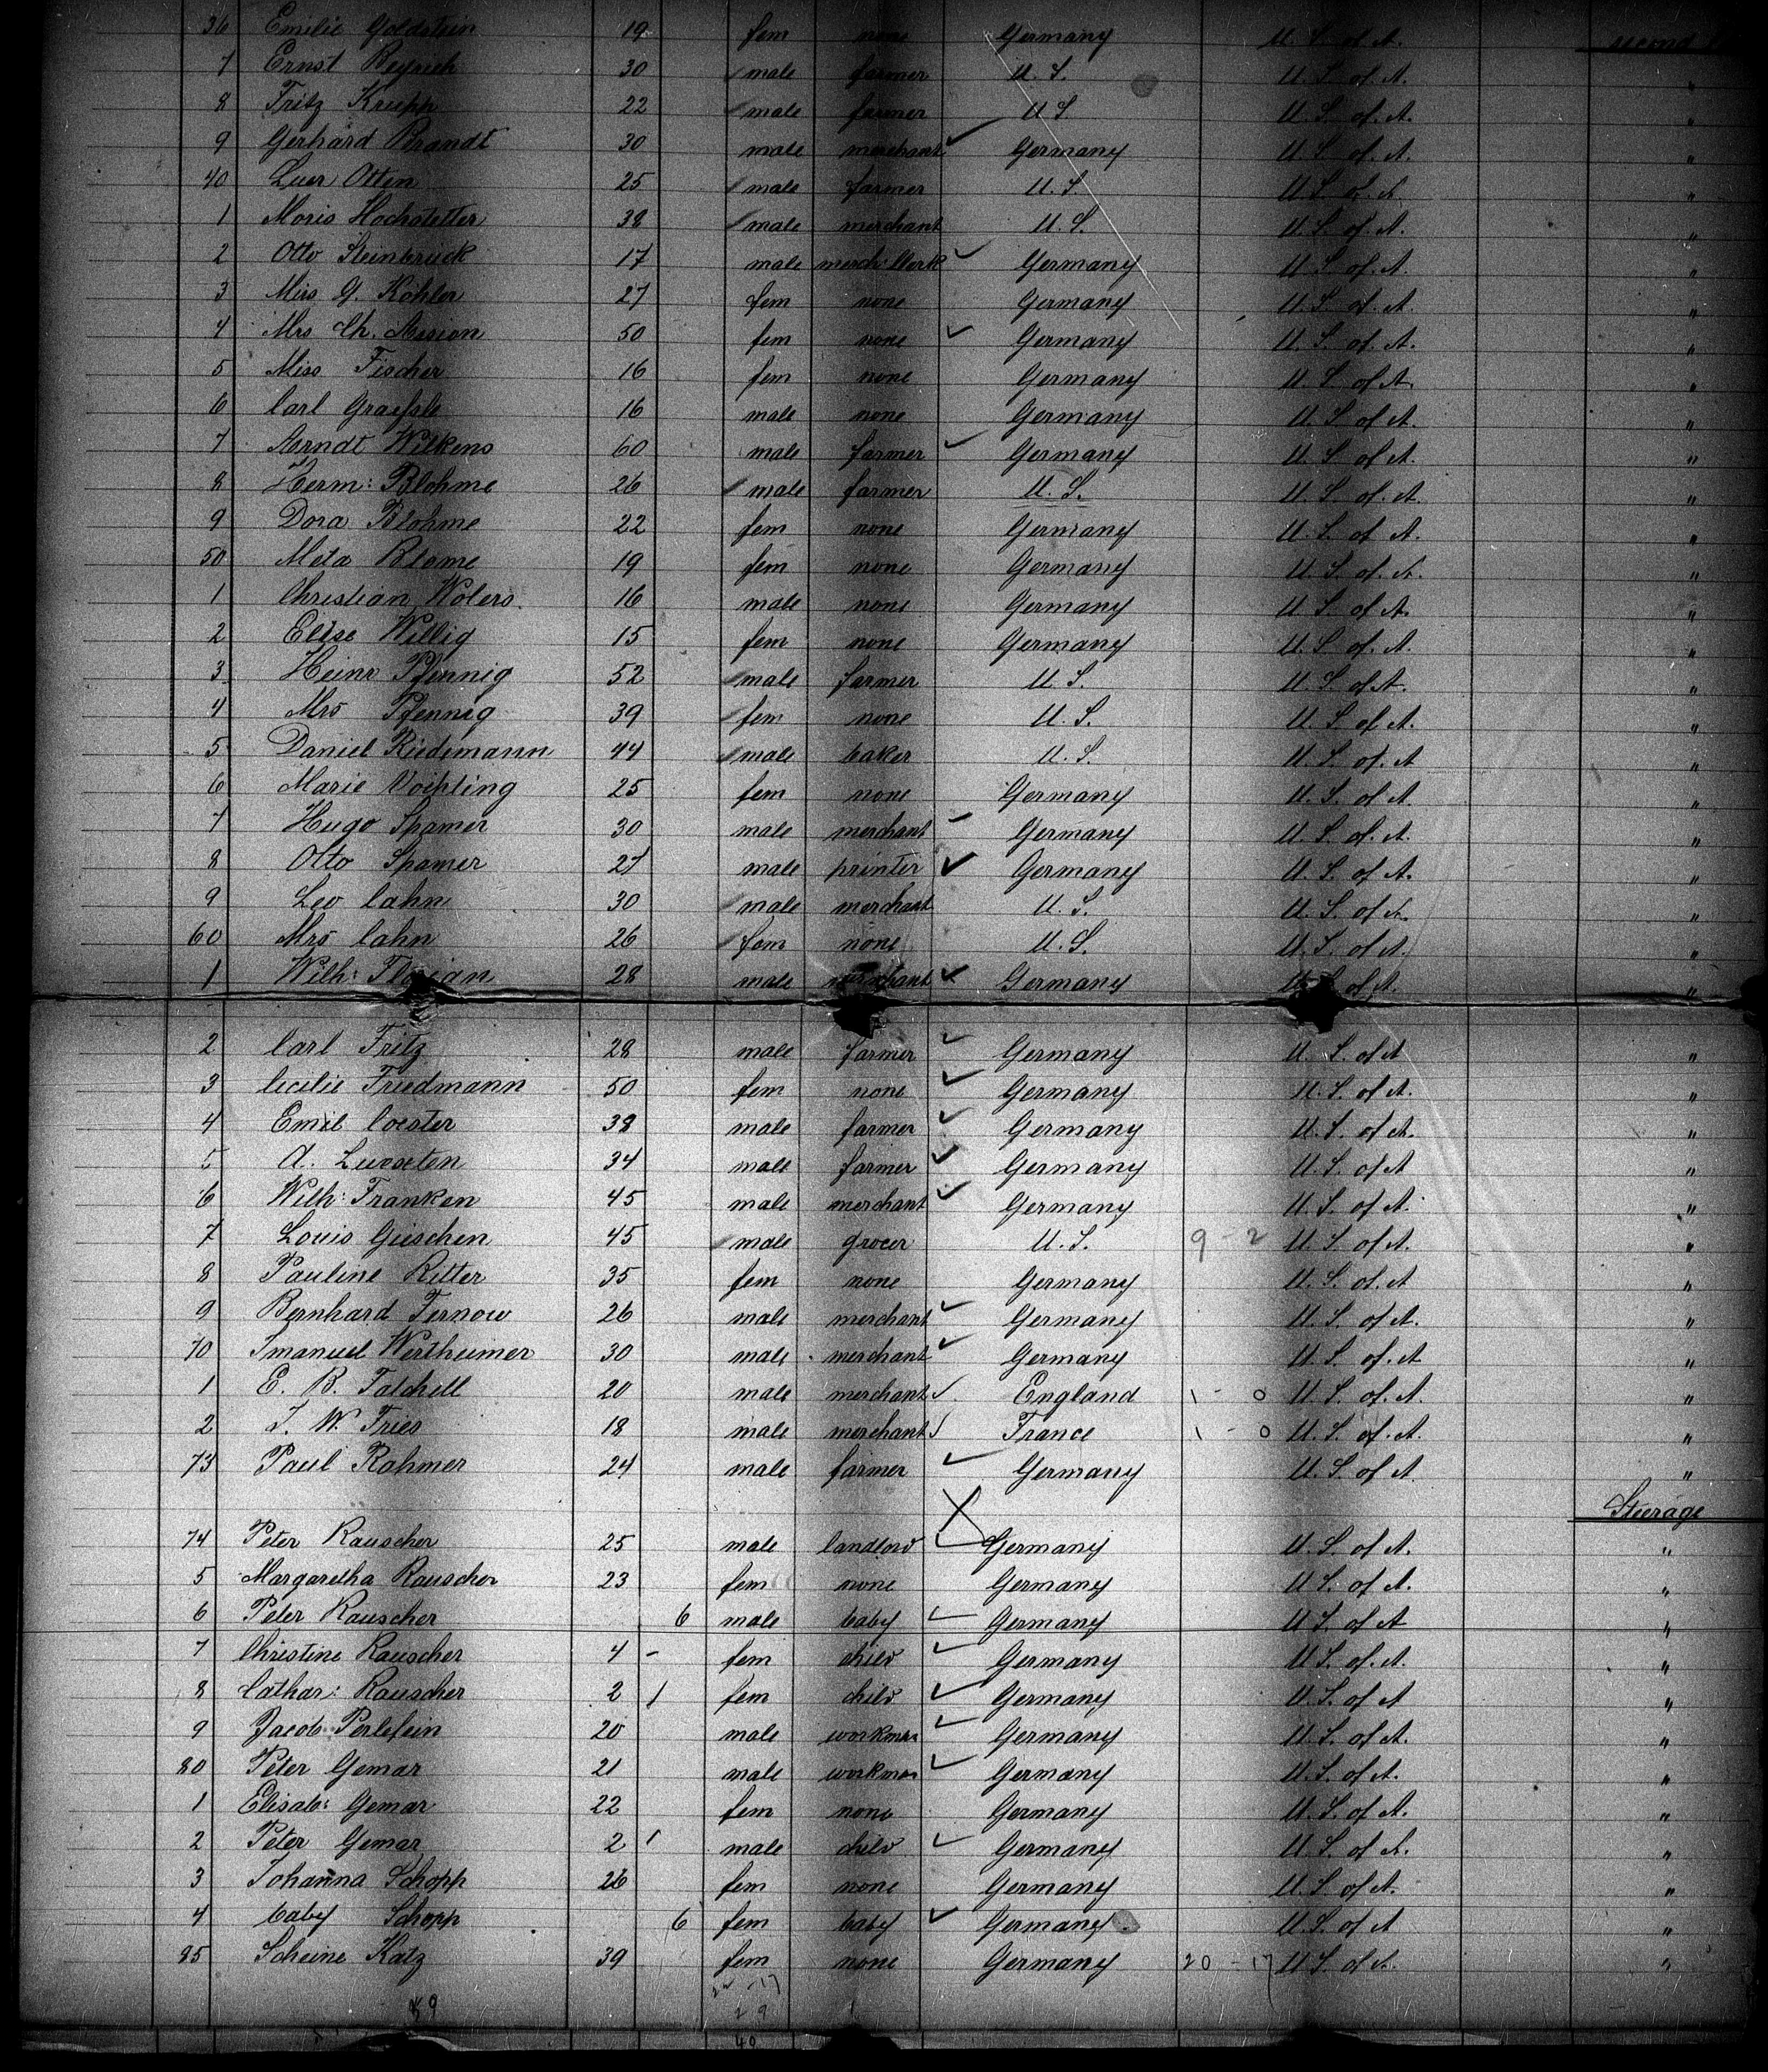 36 Emilie Goldstein 19 fem none Germany U. S. of A. second
7 Ernst Beyrich 30 male farmer U. S. U. S. of A. "
8 Fritz Krupp 22 male farmer U S U. S. of. A. "
9 Gerhard Brandt 30 male merchant Germany U. S of A. "
40 Luer Otten 25 male farmer U. S. U. S. of A. "
1 Moris Hochstetter 38 male merchant U. S. U. S. of A. "
2 Otto Steinbrück 17 male merch: Clerk Germany U. S. of. A. "
3 Miss G. Köhler 27 fem none Germany U. S. of. A. "
4 Mrs Ch. 50 fem none Germany U. S. of A. "
5 Miss Fischer 16 fem none Germany U. S of A. "
6 Carl 16 male none Germany U. S of A. "
7 Arndt Wilkens 60 male farmer Germany U. S of A. "
8 Herm: Blohme 26 male farmer U. S. U. S of A "
9 Dora Blohme 22 fem none Germany U. S. of A. "
50 Meta Blome 19 fem none Germany U. S. of. A. "
1 Christian Wolers. 16 male none Germany U. S. of A. "
2 Elise Willig 15 fem none Germany U. S of. A. "
3 Heinr Pfennig 52 male farmer U. S. U. S. of A. "
4 Mrs Pfennig 39 fem none U. S. U. S. of A. "
5 Daniel Riedemann 44 male baker U. S. U. S. of. A "
6 Marie 25 fem none Germany U. S. of A. "
7 Hugo Spamer 30 male merchant Germany U. S. of. A. "
8 Otto Spamer 27 male printer Germany U. S. of A. "
9 Leo Cahn 30 male merchant U. S. U. S. of A. "
60 Mrs Cahn 26 fem none U. S. U. S. of A. "
1 Wilh: Florian 28 male merchant Germany U. S. of A. "
2 Carl Fritz 28 male farmer Germany U. S. of A "
3 Cecilie Friedmann 50 fem none Germany U. S. of A. "
4 Emil Coester 38 male farmer Germany U. S. of A. "
5 A. 34 male farmer Germany U. S. of A "
6 Wilh: Franken 45 male merchant Germany U. S. of A. "
7 Louis Gieschen 45 male grocer U. S. 9 - 2 U. S of A. "
8 Pauline Ritter 35 fem none Germany U. S. of. A "
9 Bernhard Fernow 26 male merchant Germany U. S. of A. "
70 Imanuel Wertheimer 30 male merchant Germany U. S. of. A "
1 E. B. Tatchell 20 male merchant England 1 - 0 U. S. of. A. "
2 F. W. Fries 18 male merchant France 1 - 0 U. S. of. A. "
73 Paul Rahmer 24 male farmer Germany U. S. of A "
Steerage
74 Peter Rauscher 25 male landlord Germany U. S. of A. "
5 Margaretha Rauscher 23 fem none Germany U. S. of A. "
6 Peter Rauscher 6 male baby Germany U S. of A "
7 Christine Rauscher 4 - fem child Germany U S. of. A. "
8 Cathar: Rauscher 2 / fem child Germany U. S. of A "
9 Jacob 20 male workman Germany U. S. of A. "
80 Peter Gemar 21 male workman Germany U. S. of A. "
1 Elisab: Gemar 22 fem none Germany U. S. of A. "
2 Peter Gemar 2 / male child Germany U. S. of A. "
3 Johanna Schopp 26 fem none Germany U. S. of A. "
4 baby Schopp 6 fem baby Germany U. S. of A "
85 Scheine Katz 39 fem none Germany 20 - 17 U S. of A. "
89 29
40